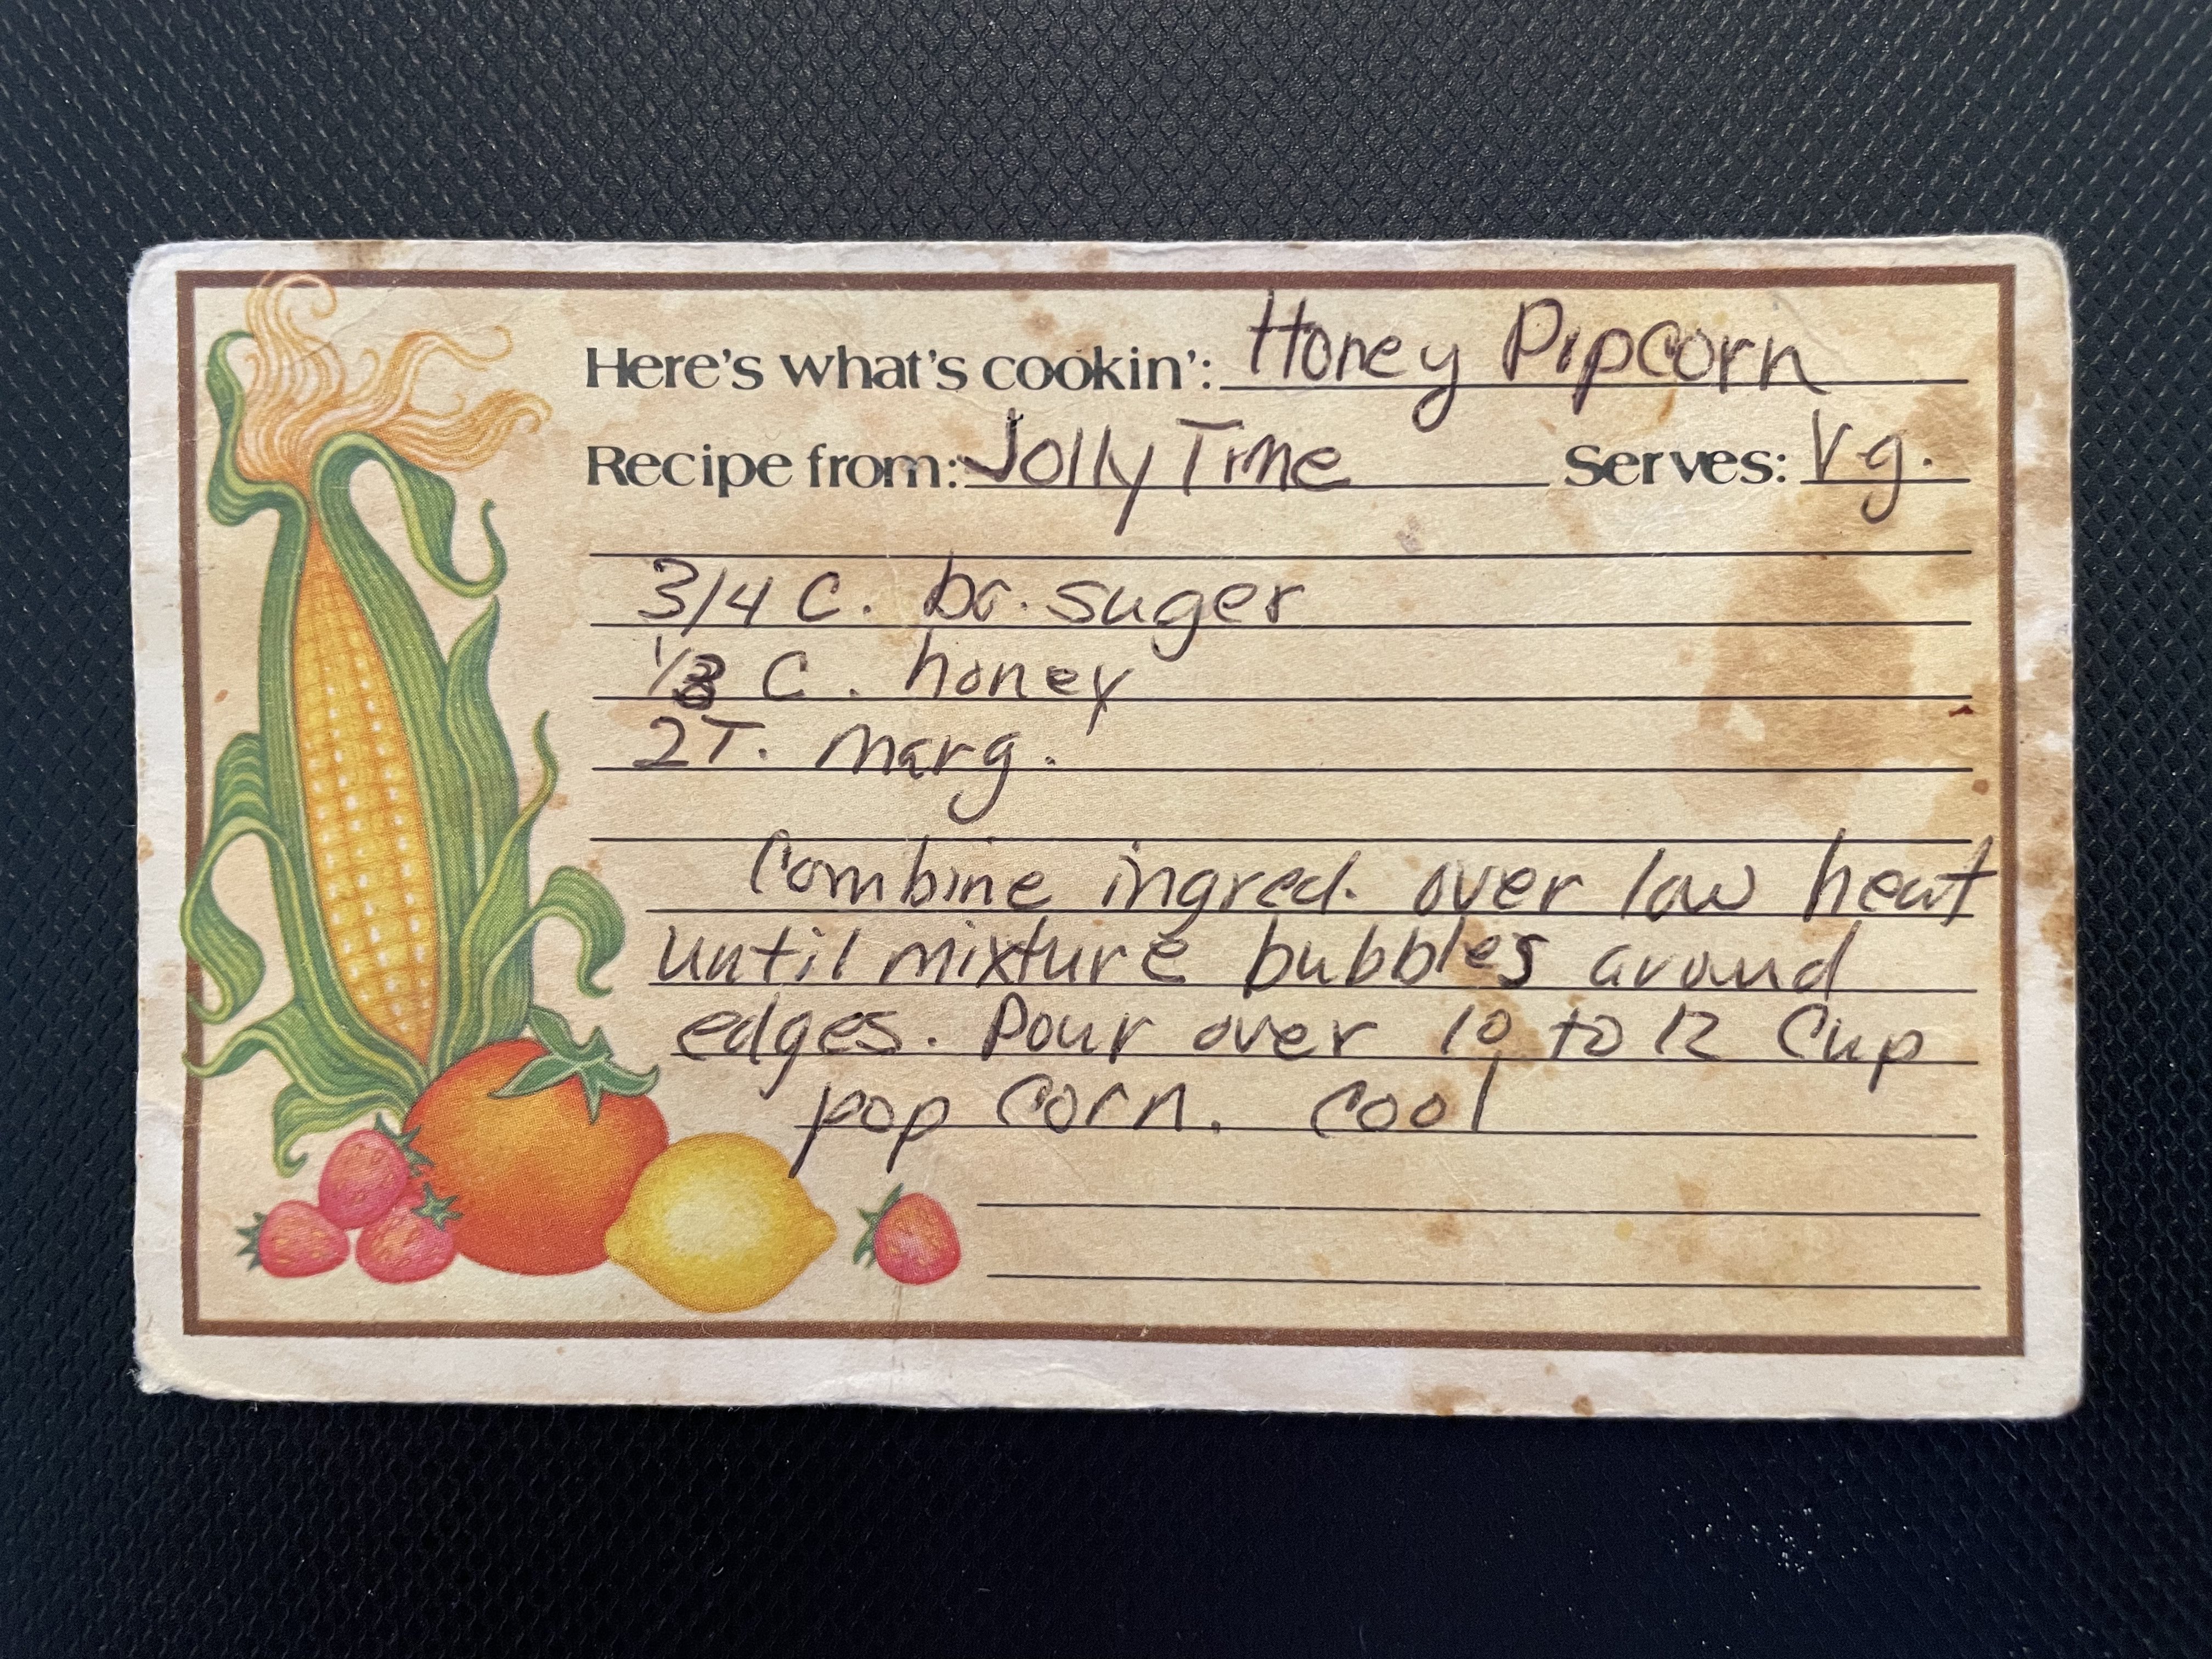 Here's what's cookin': Honey Pipcorn
Recipe from: Jolly Time Serves: Vg.
3/4 C. br. suger
1/3 C. honey
2T. marg.
Combine ingred. over low heat
until mixture bubbles around
edges. Pour over 10 to 12 Cup
pop corn. cool